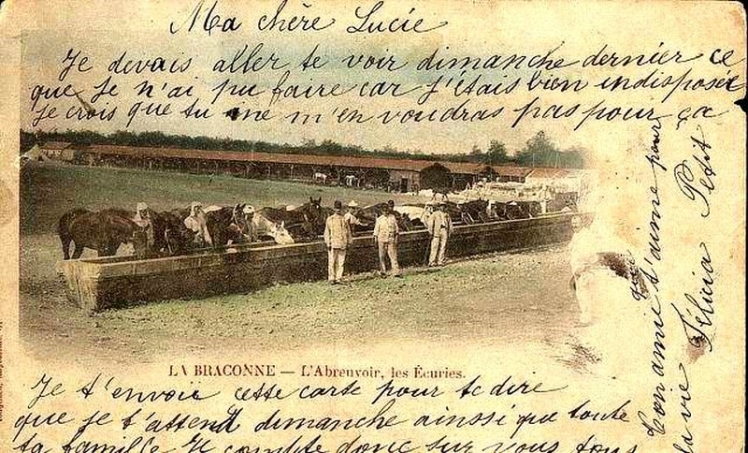 Ma chère Lucie
Je devais aller te voir dimanche dernier ce
que je n'ai pu faire car j'étais bien indisposée
Je crois que tu ne m'en voudras pas pour ça
LA BRACONNE — L'Abreuvoir, les Écuries.
Je t'envoie cette carte pour te dire
que je t'attend dimanche ainssi que toute
ta famille Je compte donc sur vous tous
Ton amie qui t'aime pour
la vie Félicia Petit